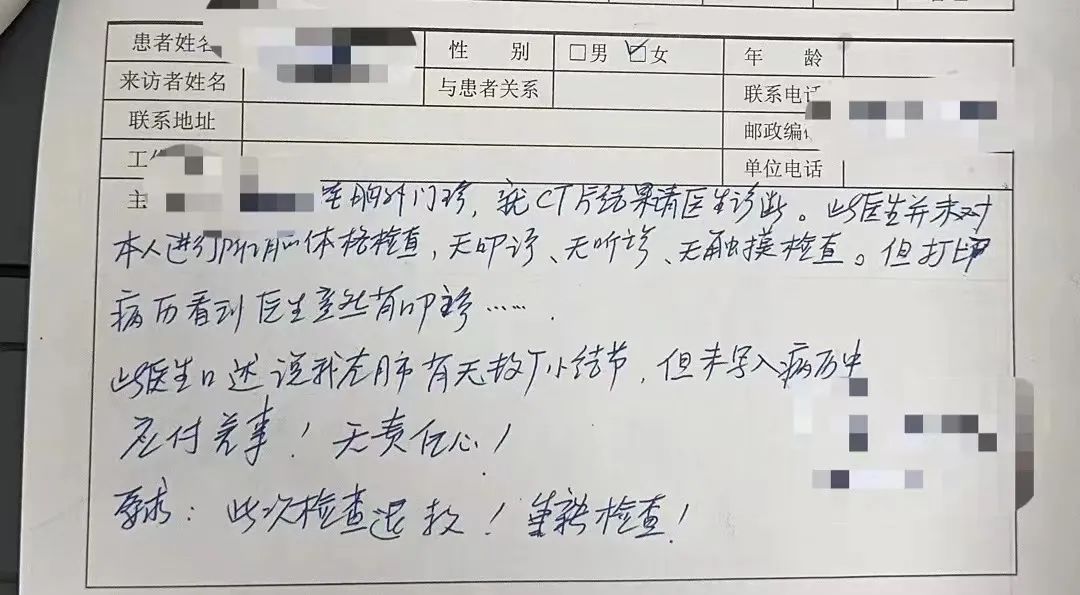 患者姓名 性 别 □男 ☑女 年 龄
来访者姓名 与患者关系 联系电话
联系地址 邮政编
工
主 至胸外门诊，就CT片结果请医生诊断。此医生并未对
本人进行所谓体格检查，无叩诊、无听诊、无触摸检查。但打印
病历看到医生竟然有叩诊……
此医生口述说我左肺有无数个小结节，但未写入病历中
应付差事！无责任心！
要求：此次检查退款！重新检查！
单位电话